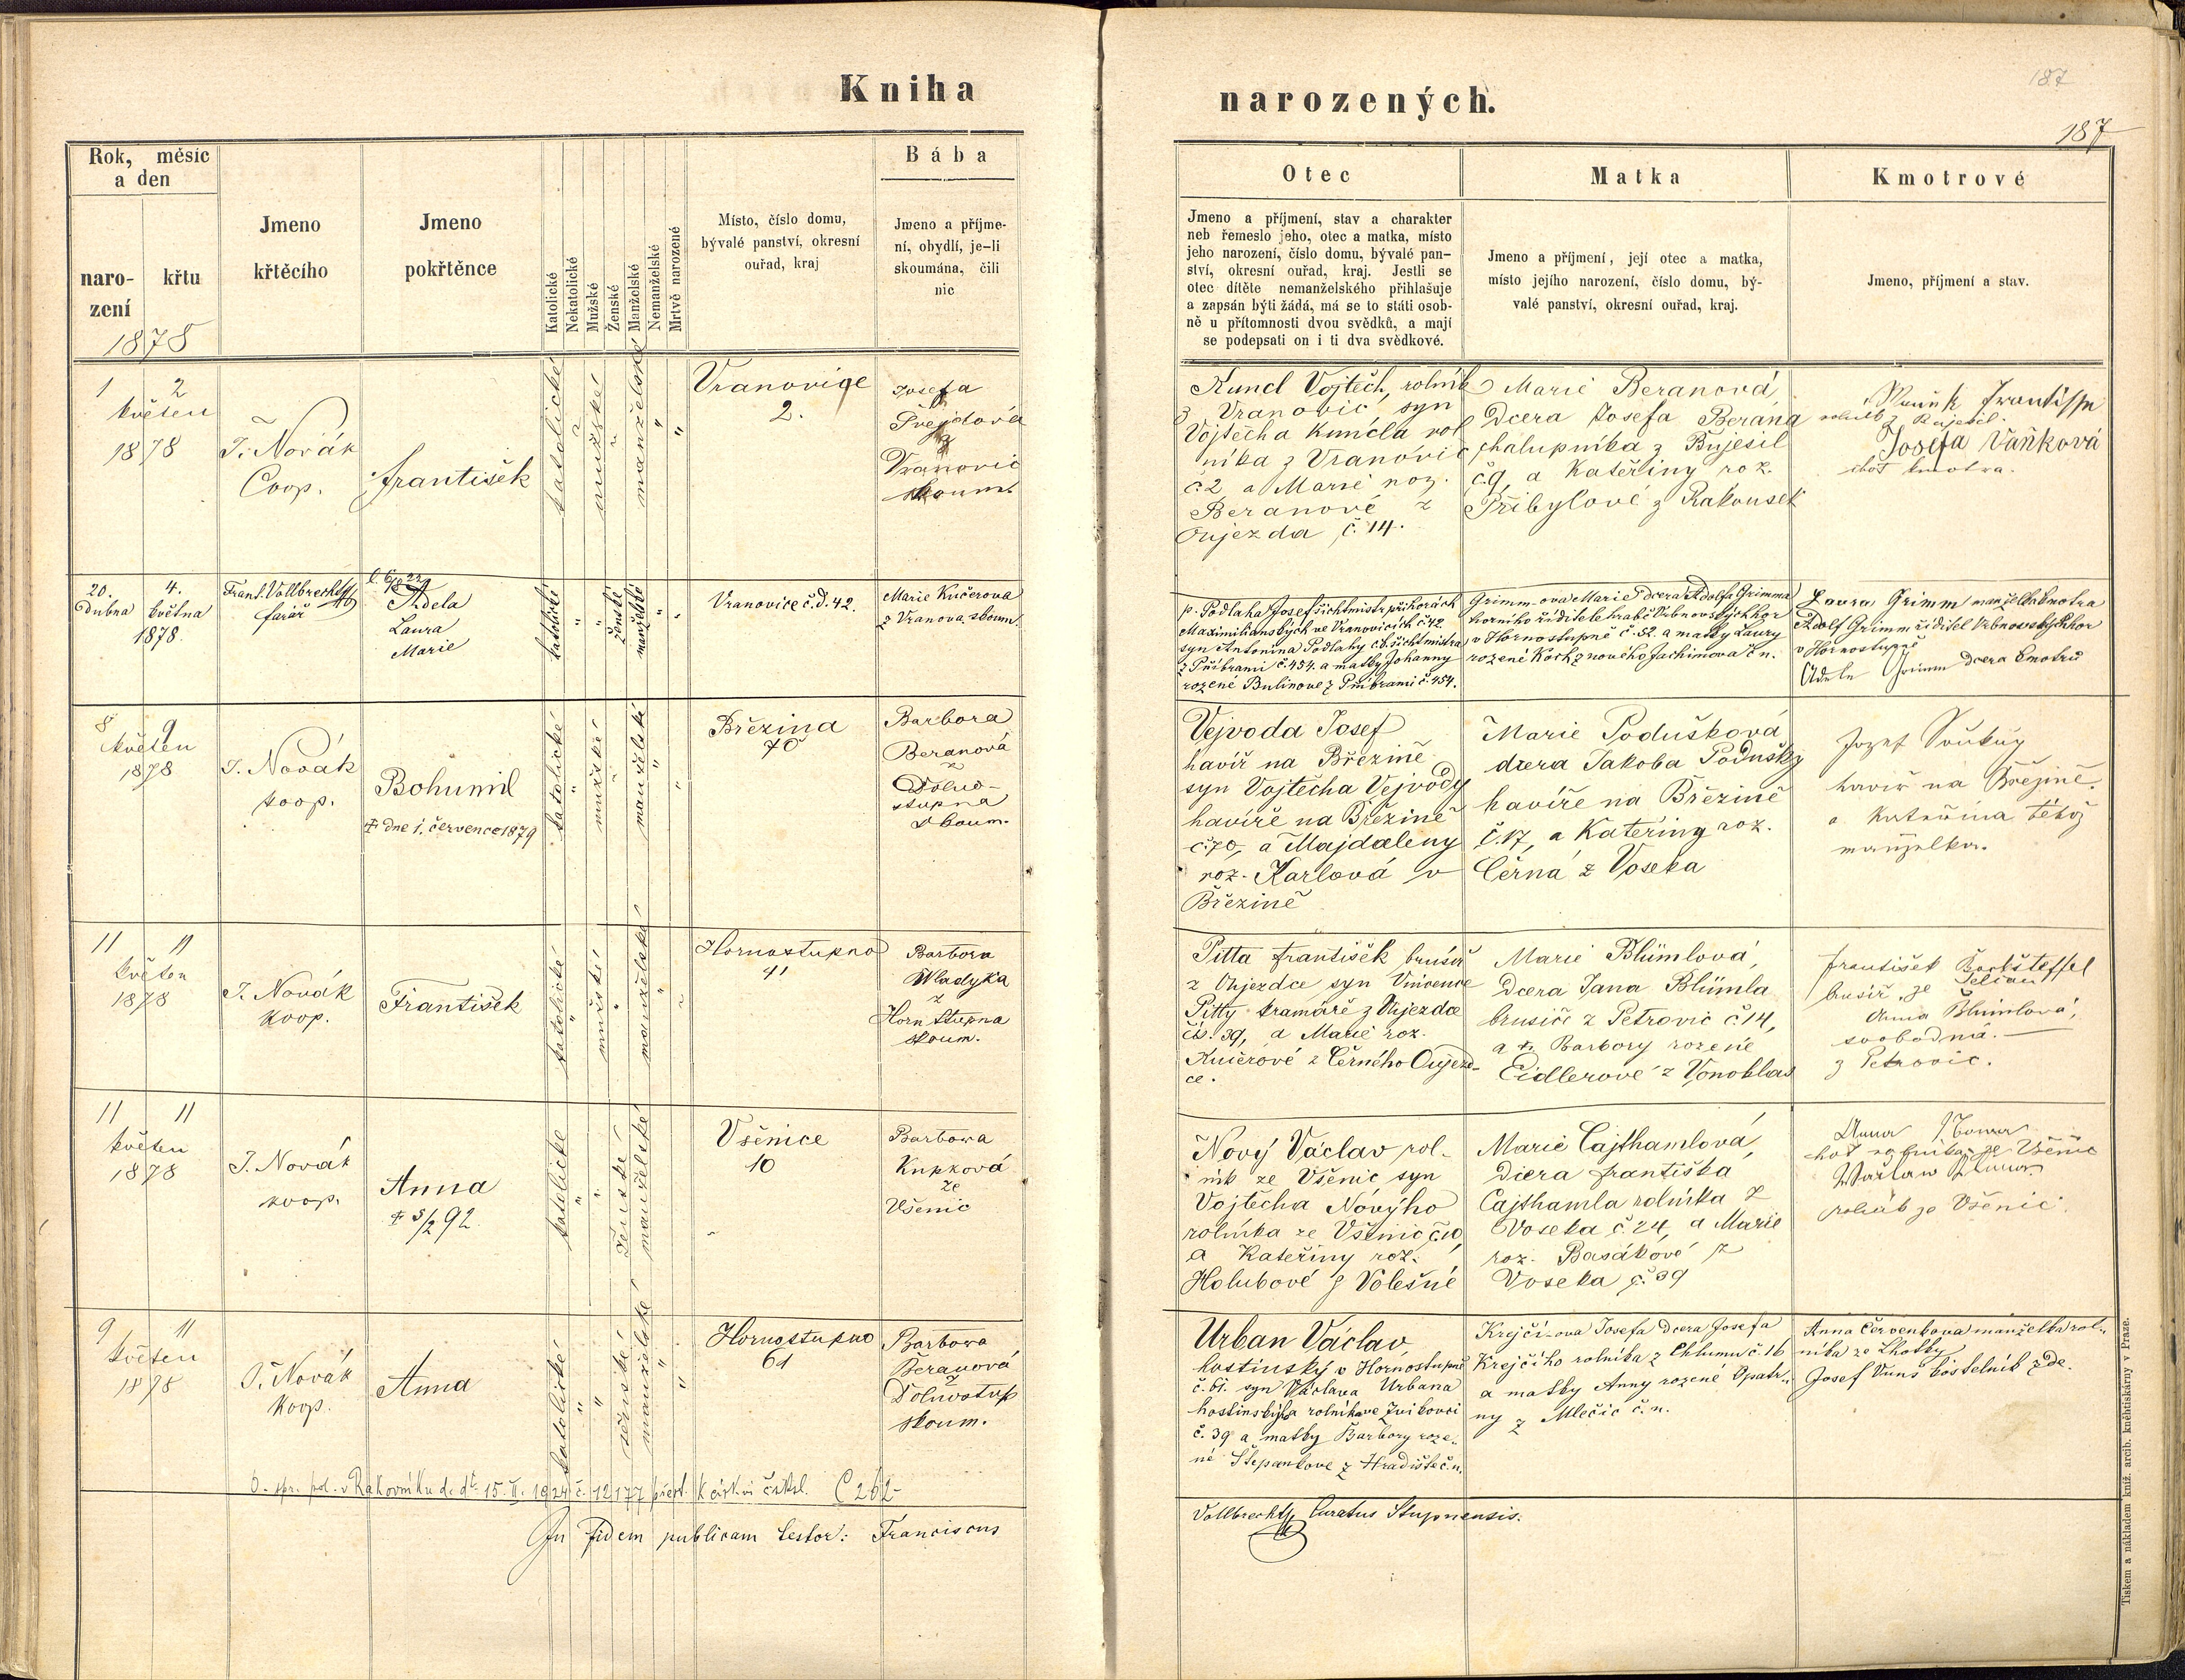 Kniha
narozených.
187
187
Rok, měsíc
a den
naro-
zení
křtu
1878
Jmeno
křtěcího
Jmeno
pokřtěnce
Katolické
Nekatolické
Mužské
Ženské
Manželské
Nemanželské
Mrtvě narozené
Místo, číslo domu,
bývalé panství, okresní
ouřad, kraj
Bába
Jmeno a příjme-
ní, obydlí, je-li
skoumána, čili
nic
Otec
Jmeno a příjmení, stav a charakter
neb řemeslo jeho, otec a matka, místo
jeho narození, číslo domu, bývalé pan-
ství, okresní ouřad, kraj. Jestli se
otec dítěte nemanželského přihlašuje
a zapsán býti žádá, má se to státi osob-
ně u přítomnosti dvou svědků, a mají
se podepsati on i ti dva svědkové.
Matka
Jmeno a příjmení, její otec a matka,
místo jejího narození, číslo domu, bý-
valé panství, okresní ouřad, kraj.
Kmotrové
Jmeno, příjmení a stav.
1 2
květen
1878
J. Novák
Coop.
František
katolické
mužské
manželské
Vranovice
2.
Josefa
Frejdová
z
Vranovic
skoum.
Kuncl Vojtěch, rolník
z Vranovic, syn
Vojtěcha Kuncla rol
níka z Vranovic
č. 2 a Marie roz.
Beranové z
Oujezda č. 14.
Marie Beranová,
Dcera Josefa Berana
chalupníka z Bujesil
č. 9, a Kateřiny roz.
Přibylové z Rakousek
František
rolník z Bujesil.
Josefa Vaňková
choť kmotra.
20. 4.
Dubna května
1878.
Frant. Vollbrecht
farář
Adela
Laura
Marie
katolické
ženské
manželské
Vranovice č. d. 42.
Marie Kučerova
z Vranova skoum.
p. Podlaha Josef šichtmistr při horách
Maximilianských ve Vranovicích č. 42
syn Antonína Podlahy c. k. šichtmistra
z Příbrami č. 454. a matky Johanny
rozené Bulinove z Příbrami č. 454.
Grimm-ova Marie dcera Adolfa Grimma
horního řiditele hraběte Vrbnovských hor
v Hornostupně č. 52. a matky Laury
rozené Koch z nového Jachimova č. n.
Laura Grimm manželka kmotra
Adolf Grimm řiditel Vrbnovských hor
v Hornostupně
Adele Grimm dcera kmotrů
8 9
květen
1878
J. Novák
koop.
Bohumil
† dne 1. července 1879
katolické
mužské
manželské
Březina
70
Barbora
Beranová
z
Dolno-
stupna
skoum.
Vejvoda Josef
havíř na Březině
syn Vojtěcha Vejvody
havíře na Březině
č. 70, a Majdaleny
roz. Karlová v
Březině
Marie Podušková
dcera Jakoba Podušky
havíře na Březině
č. 17, a Kateřiny roz.
Černá z Voseka
Jozef Soukup
havíř na Březině.
a Kateřina téhož
manželka.
11 11
květen
1878
J. Novák
koop.
František
katolické
mužské
manželské
Hornostupno
41
Barbora
Wladyka
z
Horn Stupna
skoum.
Pitta František brusíř
z Oujezdce syn Vincence
Pitty kramáře z Oujezdce
čís. 39, a Marie roz.
Kučerové z Černého Oujezd-
ce.
Marie Blümlová,
Dcera Jana Blümla
brusíče z Petrovic č. 14,
a Barbory rozené
Eidlerové z Vonoklas
František
brusíř, ze
Anna Blümlová,
svobodná.
z Petrovic.
11 11
květen
1878
J. Novák
koop.
Anna
† 5/2 92.
katolické
ženské
manželské
Všenice
10
Barbora
Kupková
ze
Všenic
Nový Václav rol-
ník ze Všenic syn
Vojtěcha Nového
rolníka ze Všenic č. 10,
a Kateřiny roz.
Holubové z Volešné
Marie Cajthamlová,
Dcera Františka
Cajthamla rolníka z
Voseka č. 24, a Marie
roz. Basákové z
Voseka č. 39
Anna
choť rolníka ze Všenic
Wáclaw
rolník ze Všenic.
9 11
květen
1878
J. Novák
koop.
Anna
katolické
ženské
manželské
Hornostupno
61
Barbora
Beranová
z
Dolnostup
skoum.
Urban Václav
hostinský v Hornostupně
č. 61. syn Václava Urbana
hostinského a rolníka ve Zvikovci
č. 39 a matky Barbory roze-
né Štěpankove z Hradiště č. n.
Krejčí-ova Josefa dcera Josefa
Krejčího rolníka z Chlumu č. 16
a matky Anny rozené Opatr-
ny z Mlečic č. n.
Anna Červenkova manželka rol-
níka ze Lhotky
Josef Vuns kostelník zde.
O. spr. pol. v Rakovníku d. dto 15. II. 1924 č. 12177 přest. k církvi čsksl. C 262
In fidem publicam testor: Franciscus
Vollbrecht Curatus Stupnensis.
Tiskem a nákladem kníž. arcib. kněhtiskárny v Praze.